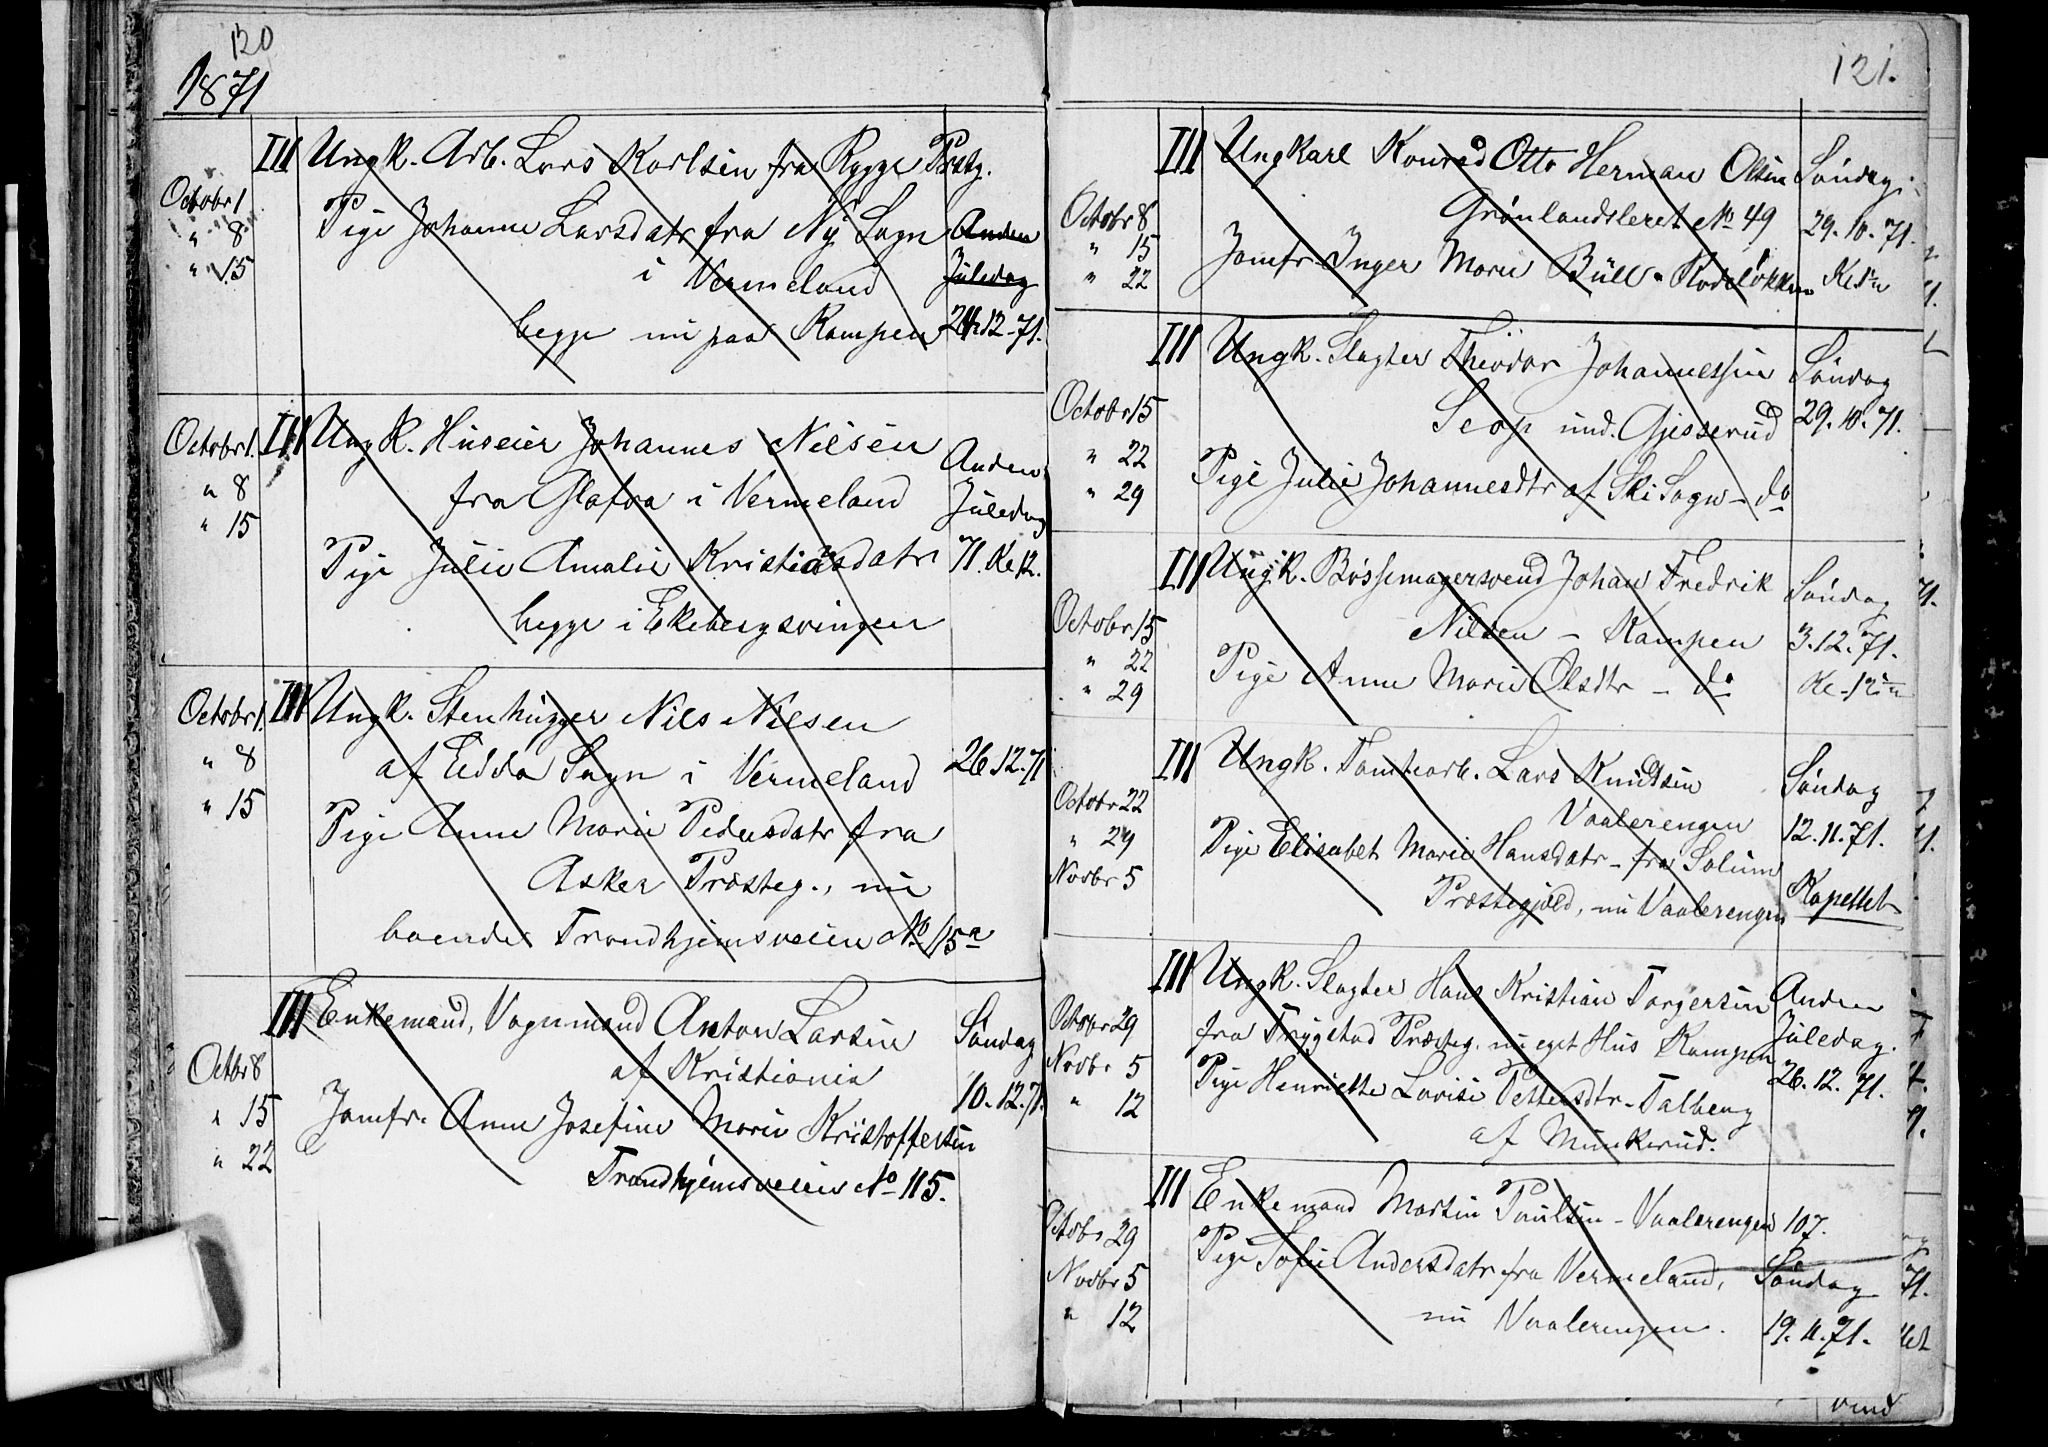 120
1871
III Ungk. Arb. Lars Karlsen fra Rygge Præstg.
Octobr 1
" 8
" 15
Pige Johanne Larsdatr fra Ny Sogn
i Vermeland
begge nu paa Kampen
Anden
Juledag
26.12.71.
Octobr 1.
" 8
" 15
III Ungk. Huseier Johannes Nilsen
fra Glafva i Vermeland
Pige Julie Amalie Kristiansdatr
begge i Ekebergsvingen
Anden
Juledag
71. Kl. 12.
Octobr 1.
" 8
" 15
III Ungk. Stenhugger Nils Nilsen
af Edda Sogn i Vermeland
Pige Anne Marie Pedersdatr fra
Asker Præsteg., nu
boende Trondhjemsveien No 15a
26.12.71
Octbr 8
" 15
" 22
III Enkemand, Vognmand Anton Larsen
af Kristiania
Jomfr. Anne Josefine Marie Kristoffersen
Trondhjemsveien No 115.
Søndag
10.12.71.
121.
Octobr 8
" 15
" 22
III Ungkarl Konrad Otto Herman Olsen
Grønlandsleret No 49
Jomfr. Inger Marie Büll - Rodeløkken
Søndag
29.10.71.
Octobr 15
" 22
" 29
III Ungk. Slagter Theodor Johannessen
Seop und. Gjesserud
Pige Julie Johannesdtr af Ski Sogn - do
Søndag
29.10.71.
Octobr 15
" 22
" 29
III Ungk. Bössemagersvend Johan Fredrik
Nilsen - Kampen
Pige Anne Marie Olsdtr - do
Søndag
3.12.71.
Kl. 12
Octobr 22
" 29
Novbr 5
III Ungk. Tomtearb. Lars Knudsen
Vaalerengen
Pige Elisabet Marie Hansdatr - fra Solum
Præstegjæld, nu Vaalerengen
Søndag
12.11.71.
Kapellet
Octobr 29
Novbr 5
" 12
III Ungk. Slagter Hans Kristian Torgersen
fra Trygstad Præsteg. nu eget Hus Kampen
Pige Henriette Lovise Pettersdtr - Talberg
af Munkerud.
Anden
Juledag.
26.12.71.
Octobr 29
Novbr 5
" 12
III Enkemand Martin Paulsen - Vaalerengen 107.
Pige Sofie Andersdatr fra Vermeland,
nu Vaalerengen.
Søndag
19.11.71.